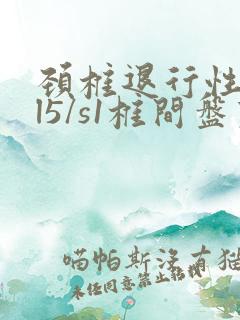 頚椎退行性
l5/s1椎間盤
喵帕斯沒有猫
未经同意禁止